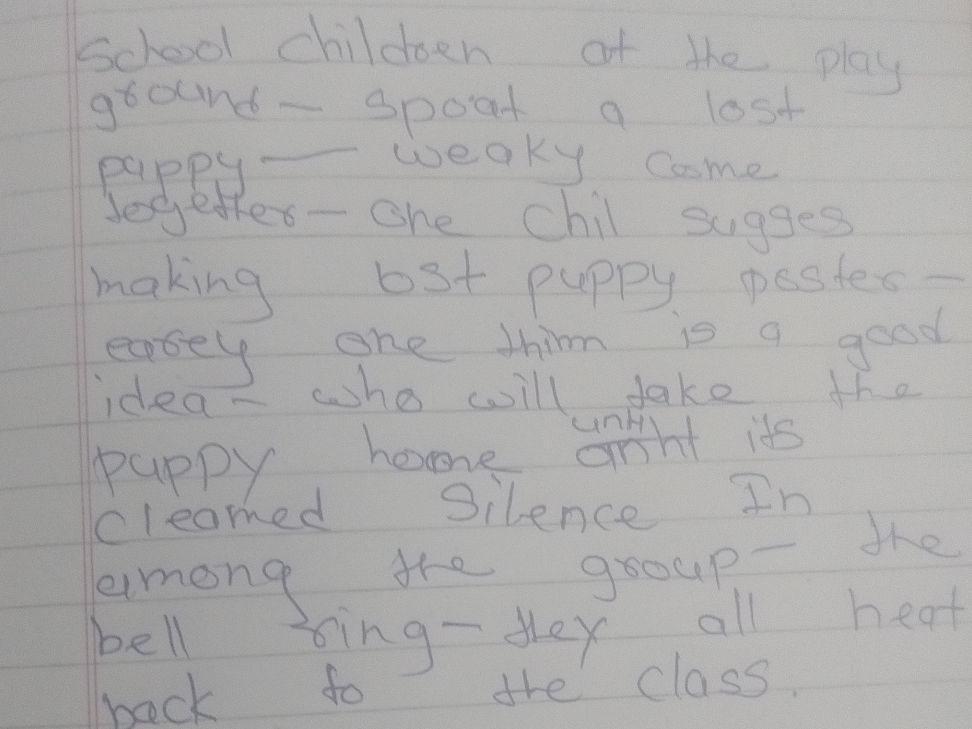 School children at the play
ground - spoat a lost
puppy - weaky come
together - one chil sugges
making lost puppy poster -
earsey one thinn is a good
idea - who will take the
puppy home until its
cleamed Silence In
among the group - the
bell ring - they all heat
back to the class.